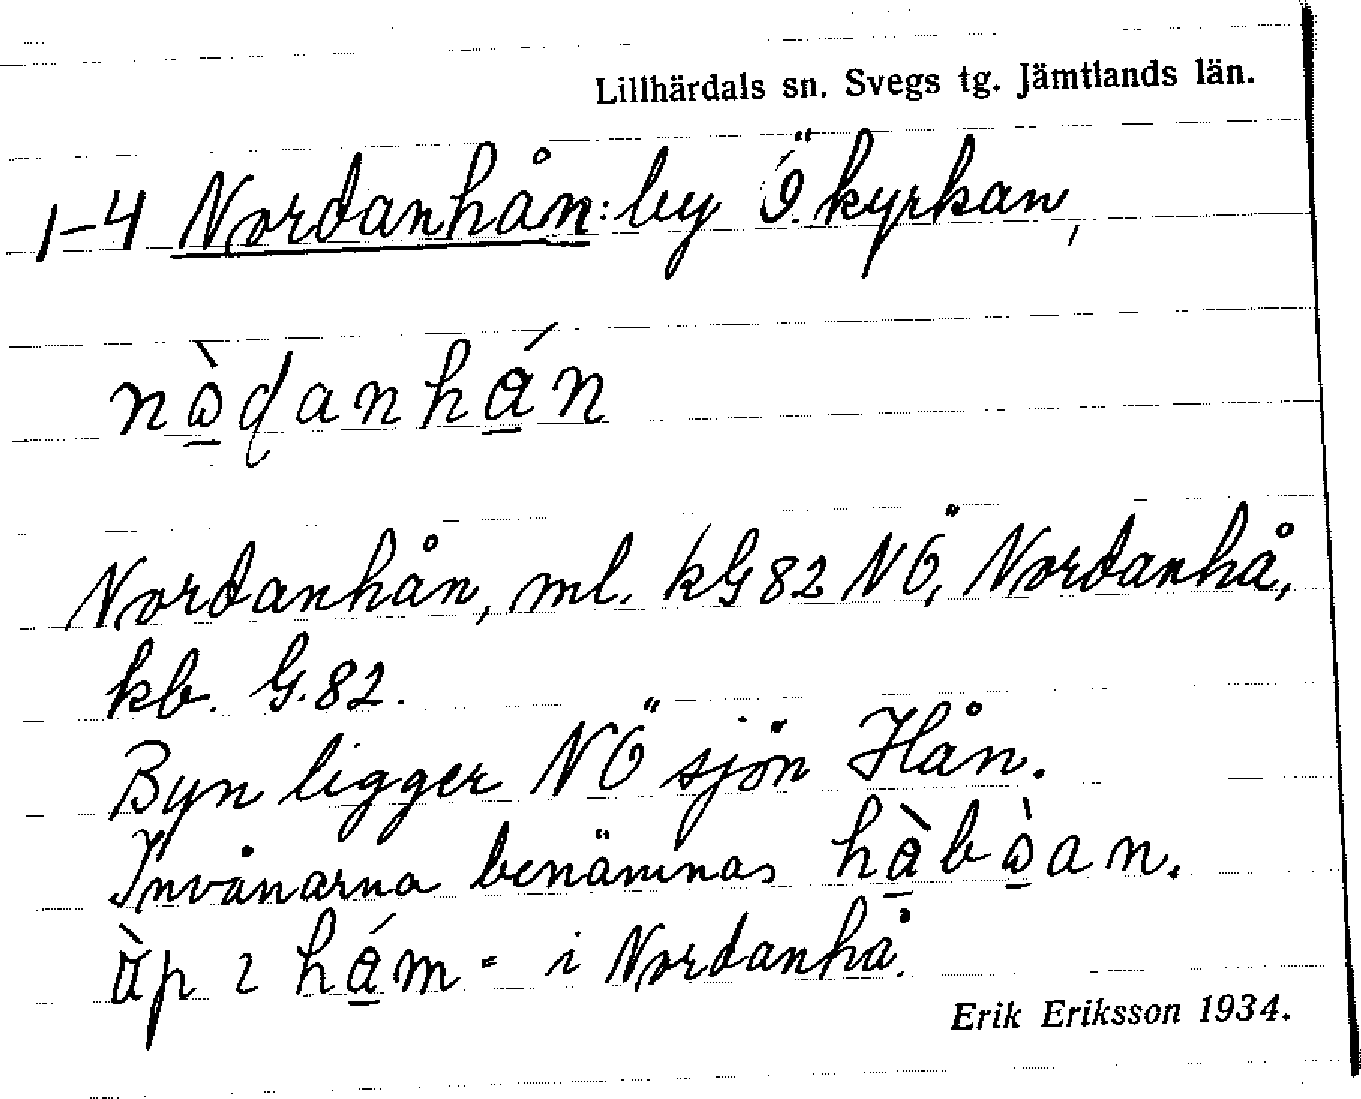 Lillhärdals sn. Svegs tg. Jämtlands län.
1-4 Nordanhån: by Ö. kyrkan,
nɷ̠̀ɖanhá̠n
Nordanhån, ml. kG82 NÖ, Nordanhå,
kb. G.82.
Byn ligger NÖ sjön Hån.
Invånarna benämnas hà̠bɷ̠̀an.
ɑ̀p ɩ há̠m = i Nordanhå.
Erik Eriksson 1934.